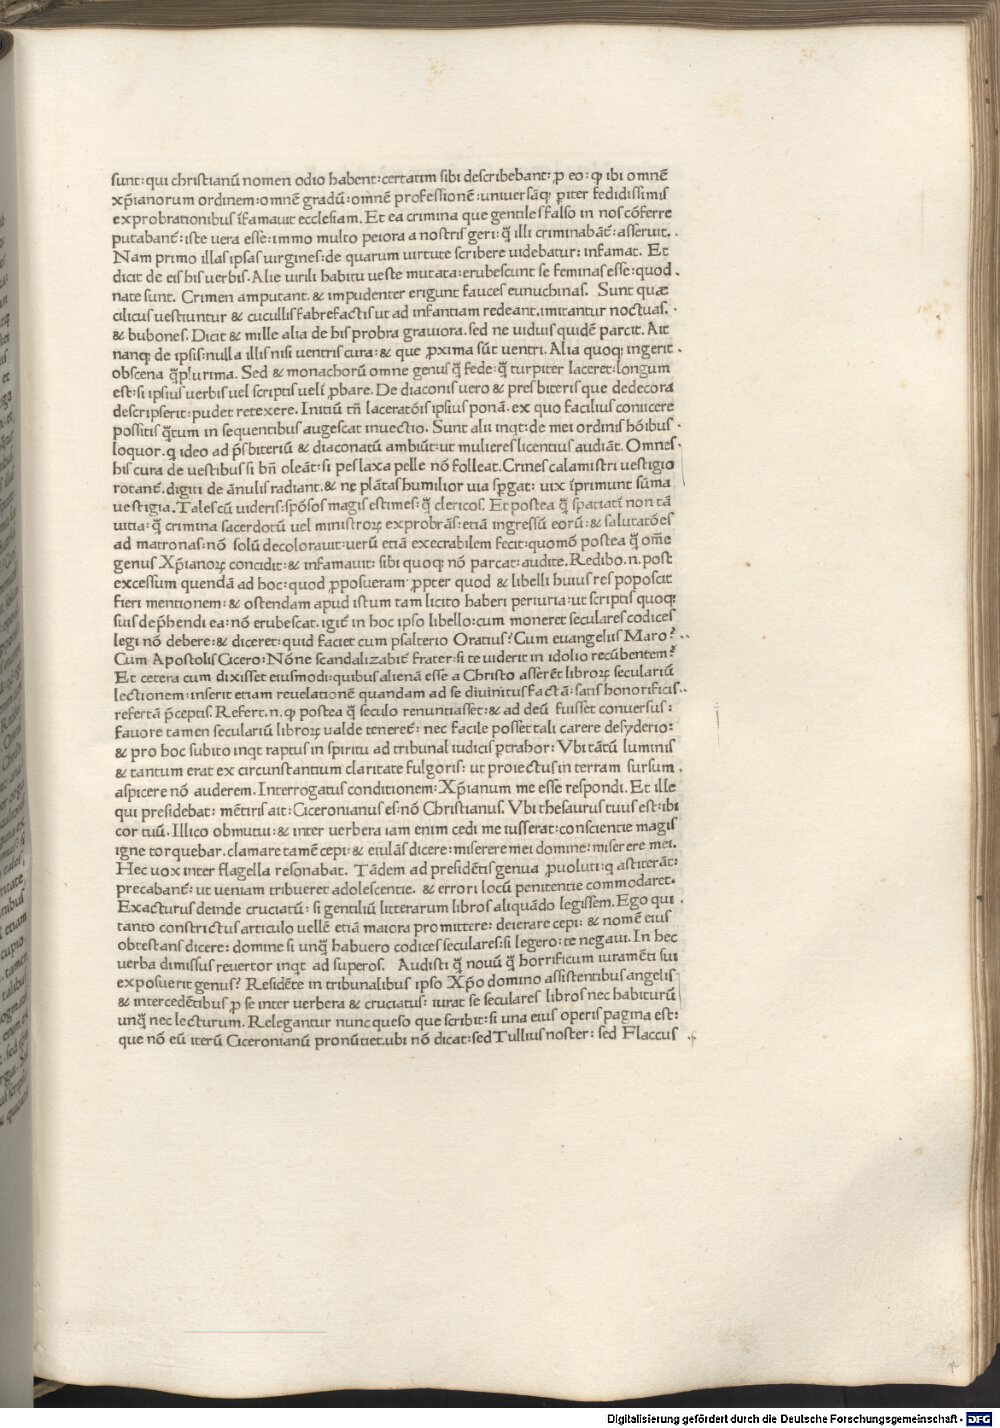 sunt: qui christianū nomen odio habent: certatim sibi describebant: ꝓ eo: ꝙ ibi omnē
xp̄ianorum ordinem: omnē gradū: omnē professionē: uniuersāq; ꝑiter fedidissimis
exprobrationibus īfamauit ecclesiam. Et ea crimina que gentiles falso in nos cōferre
putabant̄: iste uera esse: immo multo peiora a nostris geri: q̄ illi criminabāt̄: asseruit.
Nam primo illas ipsas uirgines: de quarum uirtute scribere uidebatur: infamat. Et
dicit de eis his uerbis. Alie uirili habitu ueste mutata: erubescunt se feminas esse: quod
nate sunt. Crimen amputant. & impudenter erigunt fauces eunuchinas. Sunt quæ
cilicus uestiuntur & cucullis fabrefactis ut ad infantiam redeant. imitantur noctuas.
& bubones. Dicit & mille alia de his probra grauiora. sed ne uiduis quidē parcit. Ait
nanq; de ipsis: nulla illis nisi uentris cura: & que ꝓxima sūt uentri. Alia quoq; ingerit
obscena q̄plurima. Sed & monachorū omne genus q̄ fede: q̄ turpiter laceret: longum
est: si ipsius uerbis uel scriptis ueli ꝓbare. De diaconis uero & presbiteris que dedecora
descripserit: pudet retexere. Initiū tn̄ laceratōis ipsius ponā. ex quo facilius conucere
possitis q̄tum in sequentibus augescat inuectio. Sunt alii inqt: de mei ordinis hōibus
loquor. q ideo ad pr̄sbiteriū & diaconatū ambiūt: ut mulieres licentius audiāt. Omnes
his cura de uestibus si bn̄ oleāt: si pes laxa pelle nō folleat. Crines calamistri uestigio
rotant̄. digiti de ānulis radiant. & ne plātas humilior uia spgat: uix īprimunt sūma
uestigia. Tales cū uideris: spōsos magis estimes: q̄ clericos. Et postea q̄ spatiati non tā
uitia: q̄ crimina sacerdotū uel ministroꝝ exprobrās: etiā ingressū eorū: & salutatōes
ad matronas: nō solū decolorauit: uerū etiā execrabilem fecit: quomō postea q̄ om̄e
genus Xp̄ianoꝝ concidit: & infamauit: sibi quoq; nō parcat: audite. Redibo .n. post
excessum quendā ad hoc: quod ꝓposueram: ꝓpter quod & libelli huius res poposcit
fieri mentionem: & ostendam apud istum tam licito haberi periuria: ut scriptis quoq;
suis dep̄hendi ea: nō erubescat. igit̄ in hoc ipso libello: cum moneret seculares codices
legi nō debere: & diceret: quid faciet cum psalterio Oratius? Cum euangeliis Maro?
Cum Apostolis Cicero: Nōne scandalizabit̄ frater: si te uiderit in idolio recūbentem?
Et cetera cum dixisset eiusmodi: quibus alienā esse a Christo asserēt libroꝝ seculariū
lectionem: inserit etiam reuelationē quandam ad se diuinitus factā: satis honorificis
refertā p̄ceptis. Refert .n. ꝙ postea q̄ seculo renuntiasset: & ad deū fuisset conuersus:
fauore tamen seculariū libroꝝ ualde teneret̄: nec facile posset tali carere desyderio:
& pro hoc subito inqt raptus in spiritu ad tribunal iudicis ꝑtrahor: Vbi tātū luminis
& tantum erat ex circunstantium claritate fulgoris: ut proiectus in terram sursum
aspicere nō auderem. Interrogatus conditionem: Xp̄ianum me esse respondi. Et ille
qui presidebat: mētiris ait: Ciceronianus es: nō Christianus. Vbi thesaurus tuus est: ibi
cor tuū. Illico obmutui: & inter uerbera iam enim cedi me iusserat: conscientie magis
igne torquebar. clamare tamē cepi: & eiulās dicere: miserere mei domine: miserere mei.
Hec uox inter flagella resonabat. Tādem ad presidētis genua ꝓuoluti: q astiterāt:
precabant̄: ut ueniam tribueret adolescentie. & errori locū penitentie commodaret.
Exacturus deinde cruciatū: si gentiliū litterarum libros aliquādo legissem. Ego qui
tanto constrictus articulo uellē etiā maiora promittere: deierare cepi: & nomē eius
obtestans dicere: domine si unq̄ habuero codices seculares: si legero: te negaui. In hec
uerba dimissus reuertor inqt ad superos. Audisti q̄ nouū q̄ horrificum iuramēti sui
exposuerit genus? Residēte in tribunalibus ipso Xp̄o domino assistentibus angelis
& intercedētibus ꝓ se inter uerbera & cruciatus: iurat se seculares libros nec habiturū
unq̄ nec lecturum. Relegantur nunc queso que scribit: si una eius operis pagina est:
que nō eū iterū Ciceronianū pronūciet. ubi nō dicat: sed Tullius noster: sed Flaccus
Digitalisierung gefördert durch die Deutsche Forschungsgemeinschaft - DFG